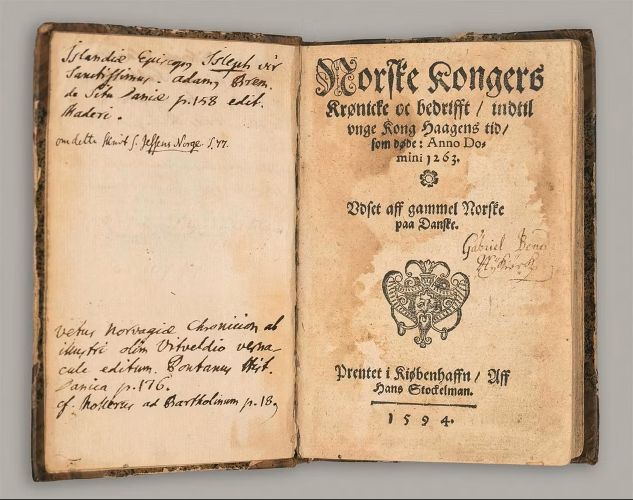 Islandiæ Episcop Isleph vir
Sanctissimus. Adam Brem.
de Situ Daniæ p. 158 edit.
Maderi.
om dette Skrift S. Jessens Norge. S. 77.
Vetus Norvagiæ Chronicion ab
illustri olim Vitveldio verna-
cule editum. Pontanus Hist.
Danica p. 176.
cf. Mollerus ad Bartholinum p. 18
Norske Kongers
Krønicke oc bedrifft / indtil
vnge Kong Haagens tid /
som døde: Anno Do-
mini 1263.
Vdset aff gammel Norske
paa Danske.
Gabriel
Prentet i Kiøbenhaffn / Aff
Hans Stockelman.
1594.